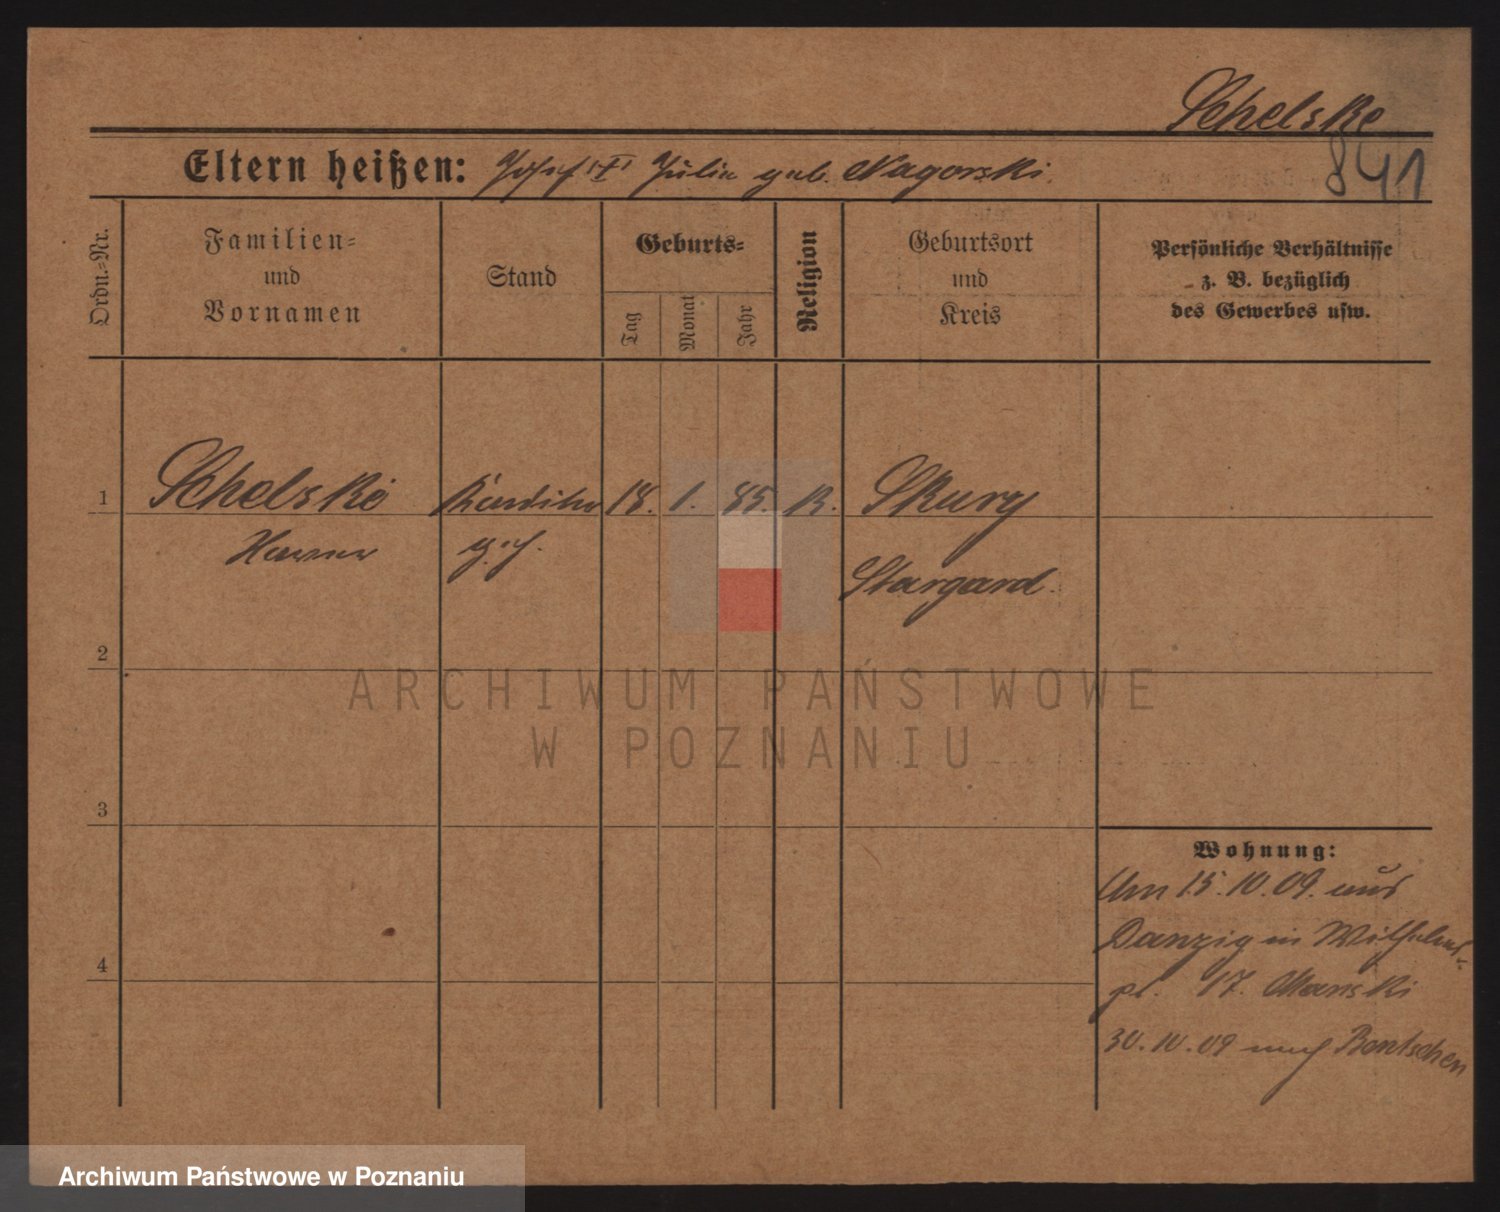 Schelske
841
Eltern heißen: Josef "†" Julia geb. Nagorski.
Ordn.-Nr.
Familien-
und
Vornamen
Stand
Geburts-
Tag
Monat
Jahr
Religion
Geburtsort
und
Kreis
Persönliche Verhältnisse
z. B. bezüglich
des Gewerbes usw.
1
Schelske
18. 1. 85. K.
Skurz
Stargard.
2
3
4
Wohnung:
Am 15.10.09. aus
Danzig in Wilhelms-
pl. 17. Manski
30.10.09 nach Bentschen
ARCHIWUM PAŃSTWOWE
W POZNANIU
Archiwum Państwowe w Poznaniu